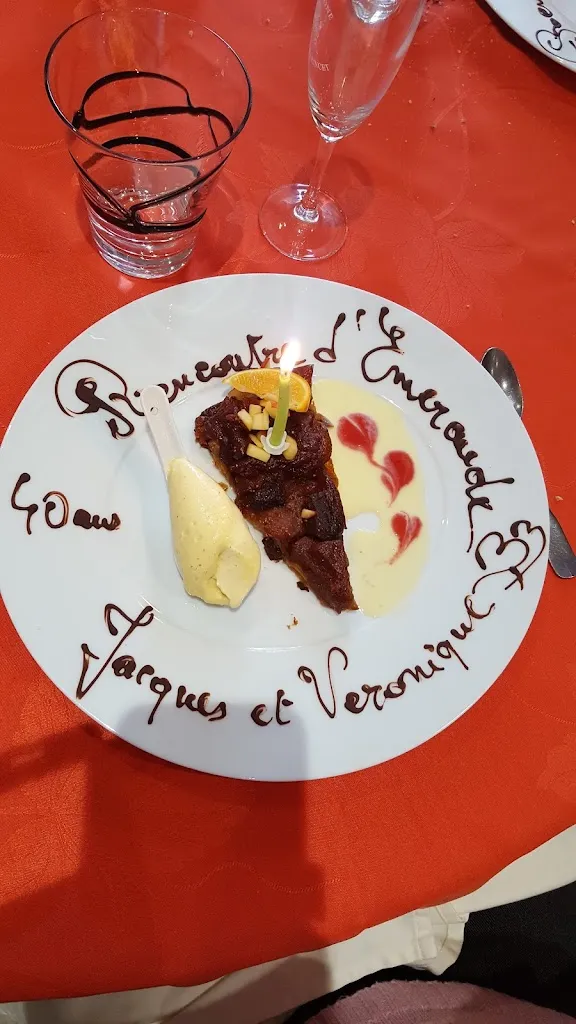 Rencontre d'Emeraude
40 ans
Jacques et Veronique